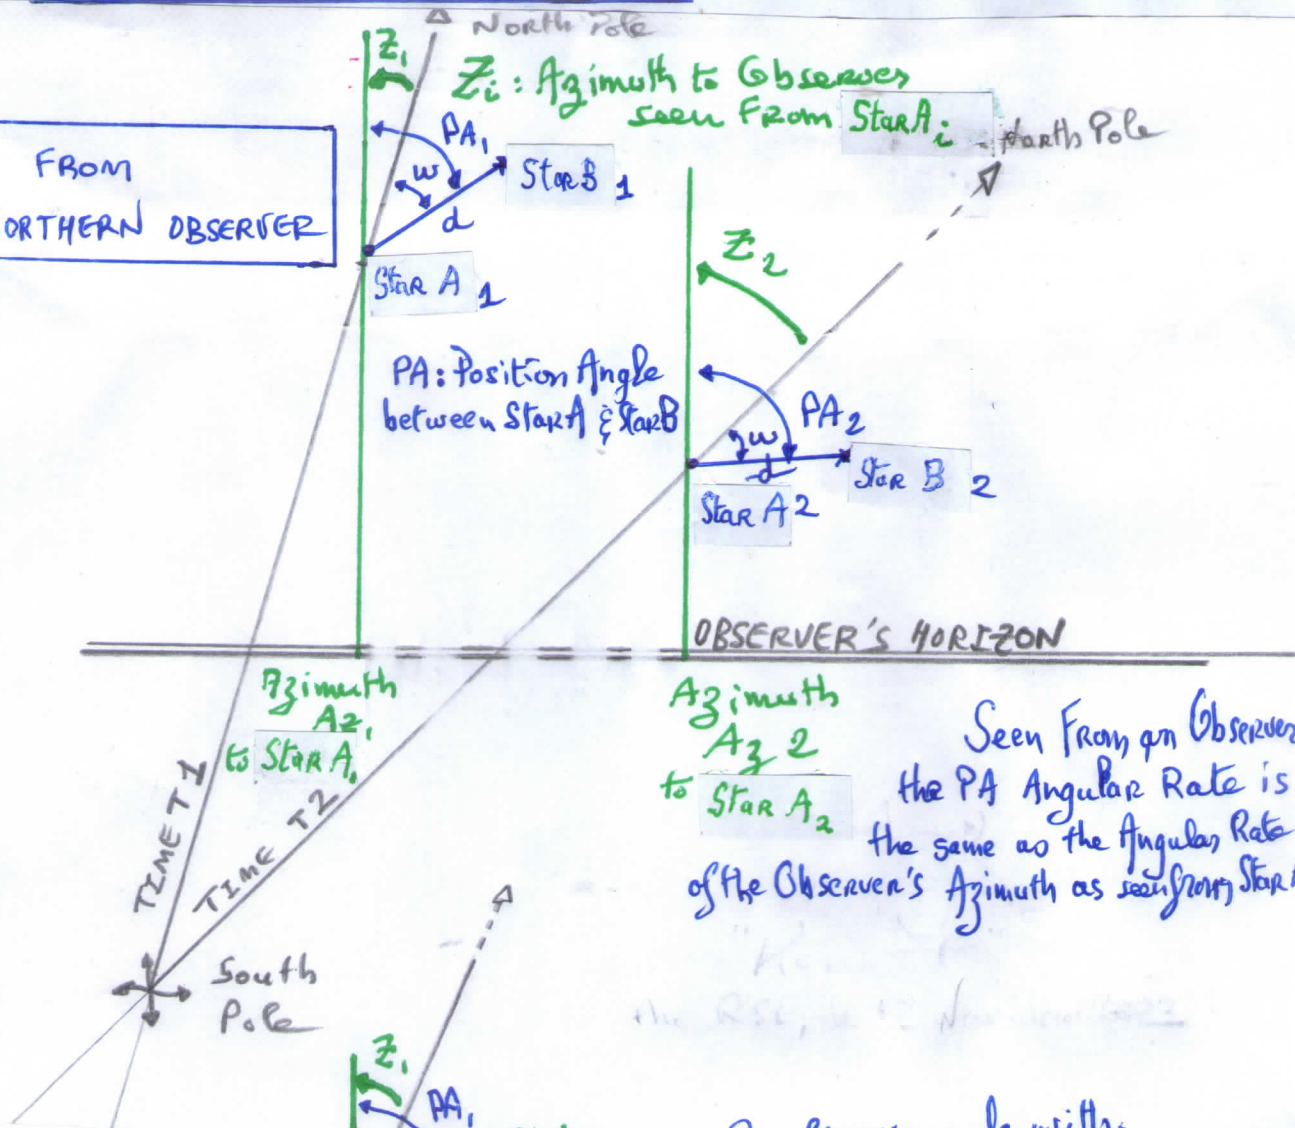 North Pole
Z1
Zi : Azimuth to Observer
seen From Star Ai
North Pole
FROM
ORTHERN OBSERVER
PA1
w
Star B 1
d
Star A 1
Z2
PA: Position Angle
between Star A & Star B
PA2
w
d
Star B 2
Star A 2
OBSERVER'S HORIZON
Azimuth
Az1
to Star A1
Azimuth
Az 2
to Star A2
Seen From an Observer
the PA Angular Rate is
the same as the Angular Rate
of the Observer's Azimuth as seen from Star
TIME T1
TIME T2
South
Pole
Z1
PA1